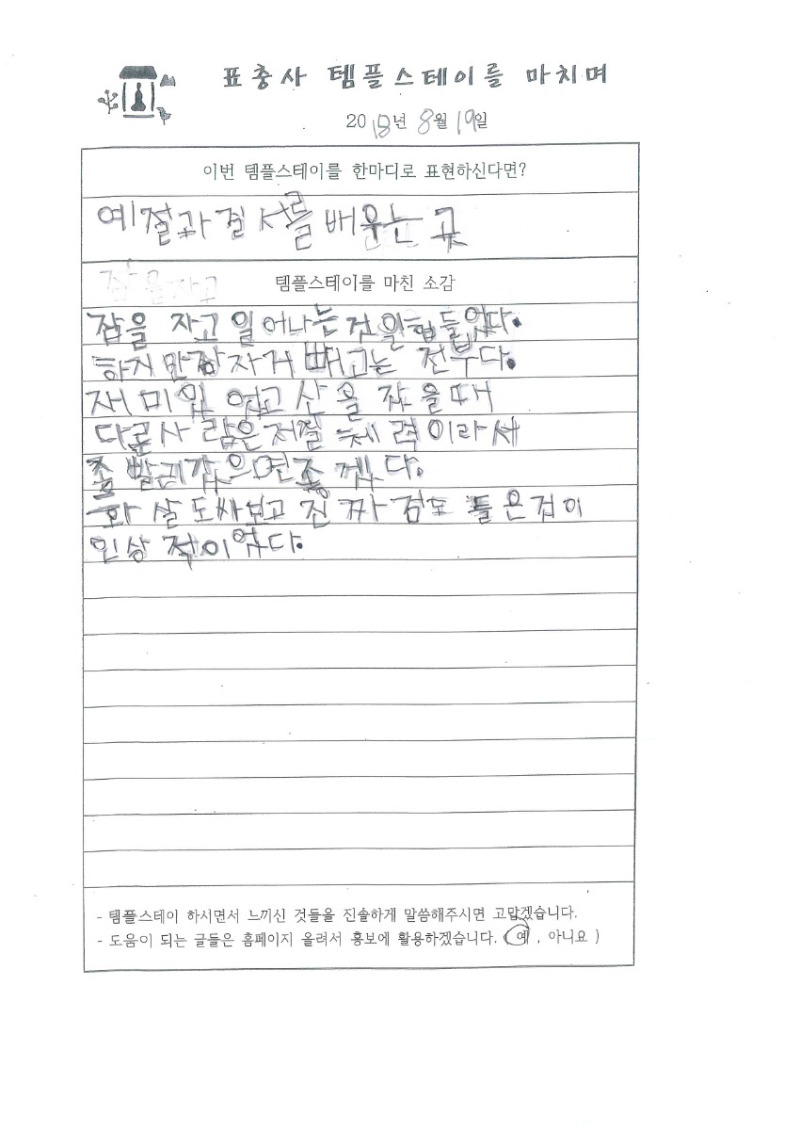 표충사 템플스테이를 마치며
2018년 8월 19일
이번 템플스테이를 한마디로 표현하신다면?
예절과 질서를 배우는 곳
잠을자고
템플스테이를 마친 소감
잠을 자고 일어나는 것이 힘들었다.
하지만 잠자기 빼고는 전부다.
재미있 었고 산을 갔을때
다른사 람은 저질 체력이라서
좀 빨리갔으면 좋겠다.
화살 도 쏴보고 진짜 검도 들은검이
인상 적이었다.
- 템플스테이 하시면서 느끼신 것들을 진솔하게 말씀해주시면 고맙겠습니다.
- 도움이 되는 글들은 홈페이지 올려서 홍보에 활용하겠습니다. ( 예 , 아니요 )